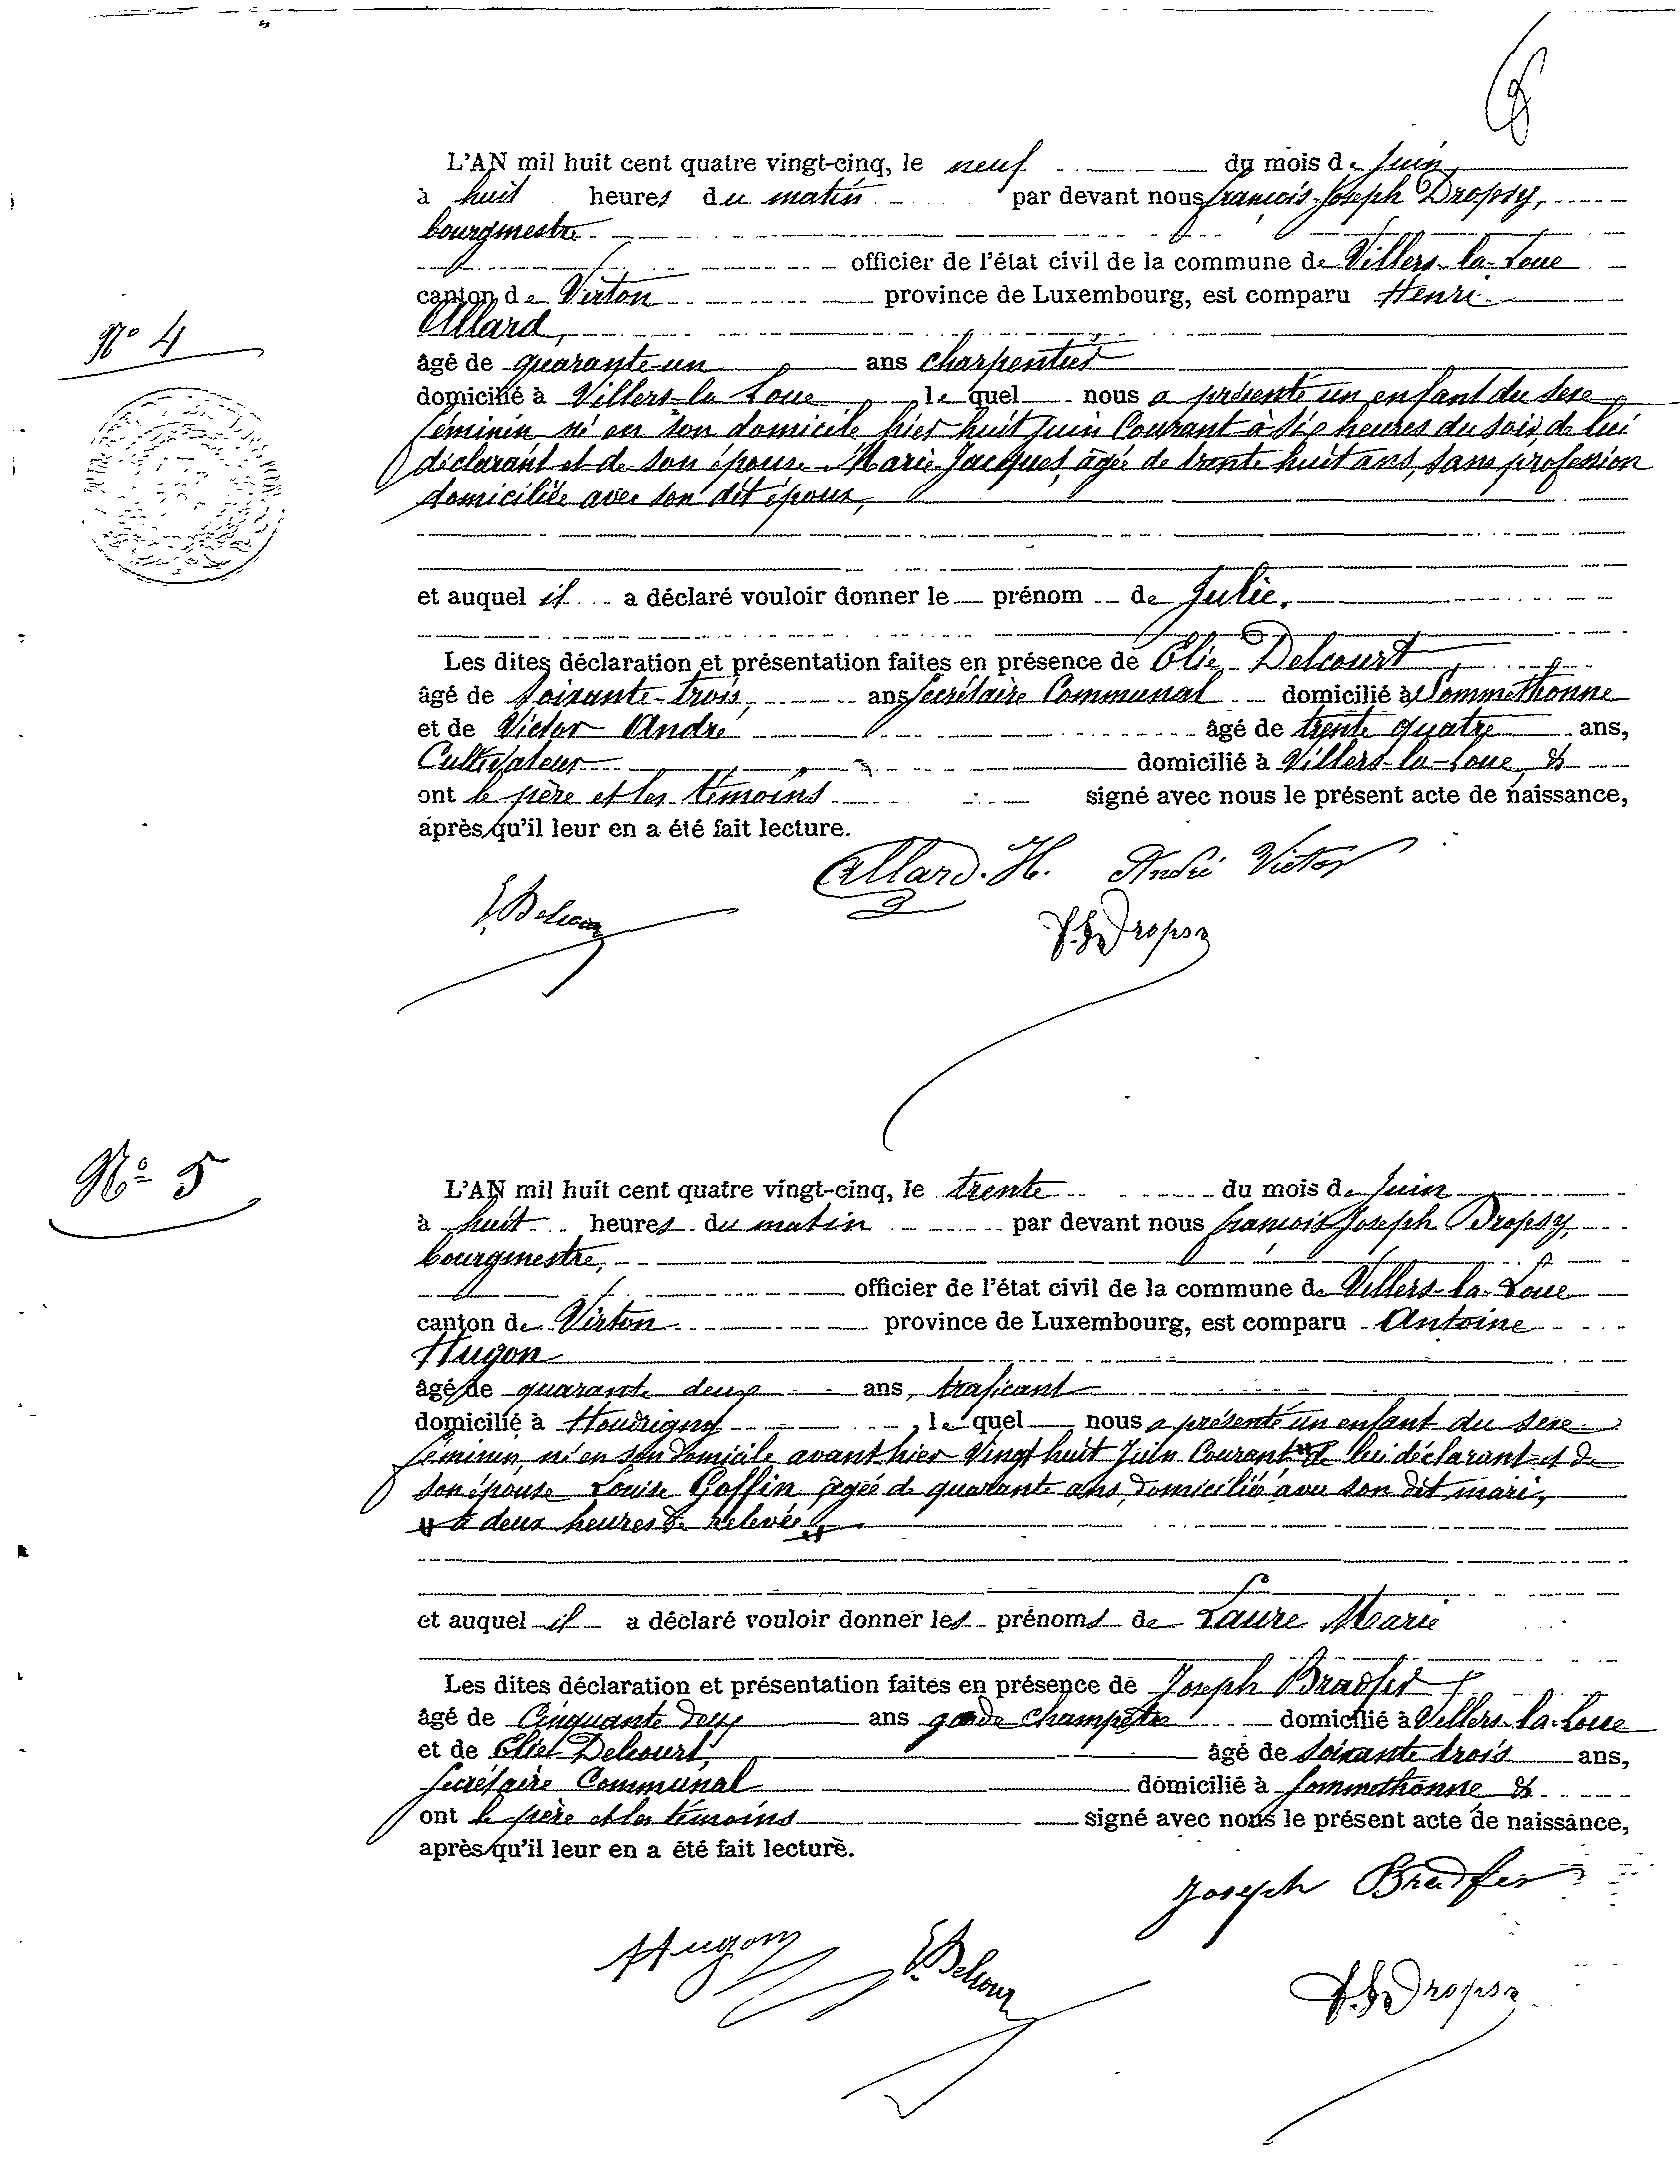 L'AN mil huit cent quatre vingt-cinq, le neuf du mois de Juin
à huit heures du matin par devant nous françois Joseph Dropsy,
bourgmestre
officier de l'état civil de la commune de Villers-la-Loue
canton de Virton province de Luxembourg, est comparu Henri
Allard,
N° 4
âgé de quarante-un ans charpentier
domicilié à Villers-la Loue lequel nous a présenté un enfant du sexe
féminin, né en son domicile hier huit Juin Courant à six heures du soir, de lui
déclarant et de son épouse Marie Jacques, âgée de trente huit ans, sans profession
domiciliée avec son dit époux,
et auquel il a déclaré vouloir donner le prénom de Julie.
Les dites déclaration et présentation faites en présence de Elie Delcourt,
âgé de soixante-trois, ans Secrétaire Communal domicilié à Sommethonne
et de Victor André âgé de trente quatre ans,
Cultivateur domicilié à Villers-la-Loue, &
ont le père et les témoins signé avec nous le présent acte de naissance,
après qu'il leur en a été fait lecture.
Allard. H. André Victor
E. Delcour
F. J. Dropsy
N° 5
L'AN mil huit cent quatre vingt-cinq, le trente du mois de Juin
à huit heures du matin par devant nous françois Joseph Dropsy,
bourgmestre,
officier de l'état civil de la commune de Villers-la-Loue
canton de Virton province de Luxembourg, est comparu Antoine
Hugon
âgé de quarante deux ans, traficant
domicilié à Houdrigny, lequel nous a présenté un enfant du sexe
féminin, né en son domicile avant hier vingt huit Juin Courant de lui déclarant et de
son épouse Louise Goffin, âgée de quarante ans, domiciliée avec son dit mari,
à deux heures de relevée
et auquel il a déclaré vouloir donner les prénoms de Laure Marie
Les dites déclaration et présentation faites en présence de Joseph Bradfer
âgé de Cinquante deux ans garde champêtre domicilié à Villers-la-Loue
et de Elie Delcourt, âgé de soixante trois ans,
Secrétaire Communal domicilié à Sommethonne &
ont le père et les témoins signé avec nous le présent acte de naissance,
après qu'il leur en a été fait lecture.
Joseph Bradfer
Hugon E. Delcour
F. J. Dropsy